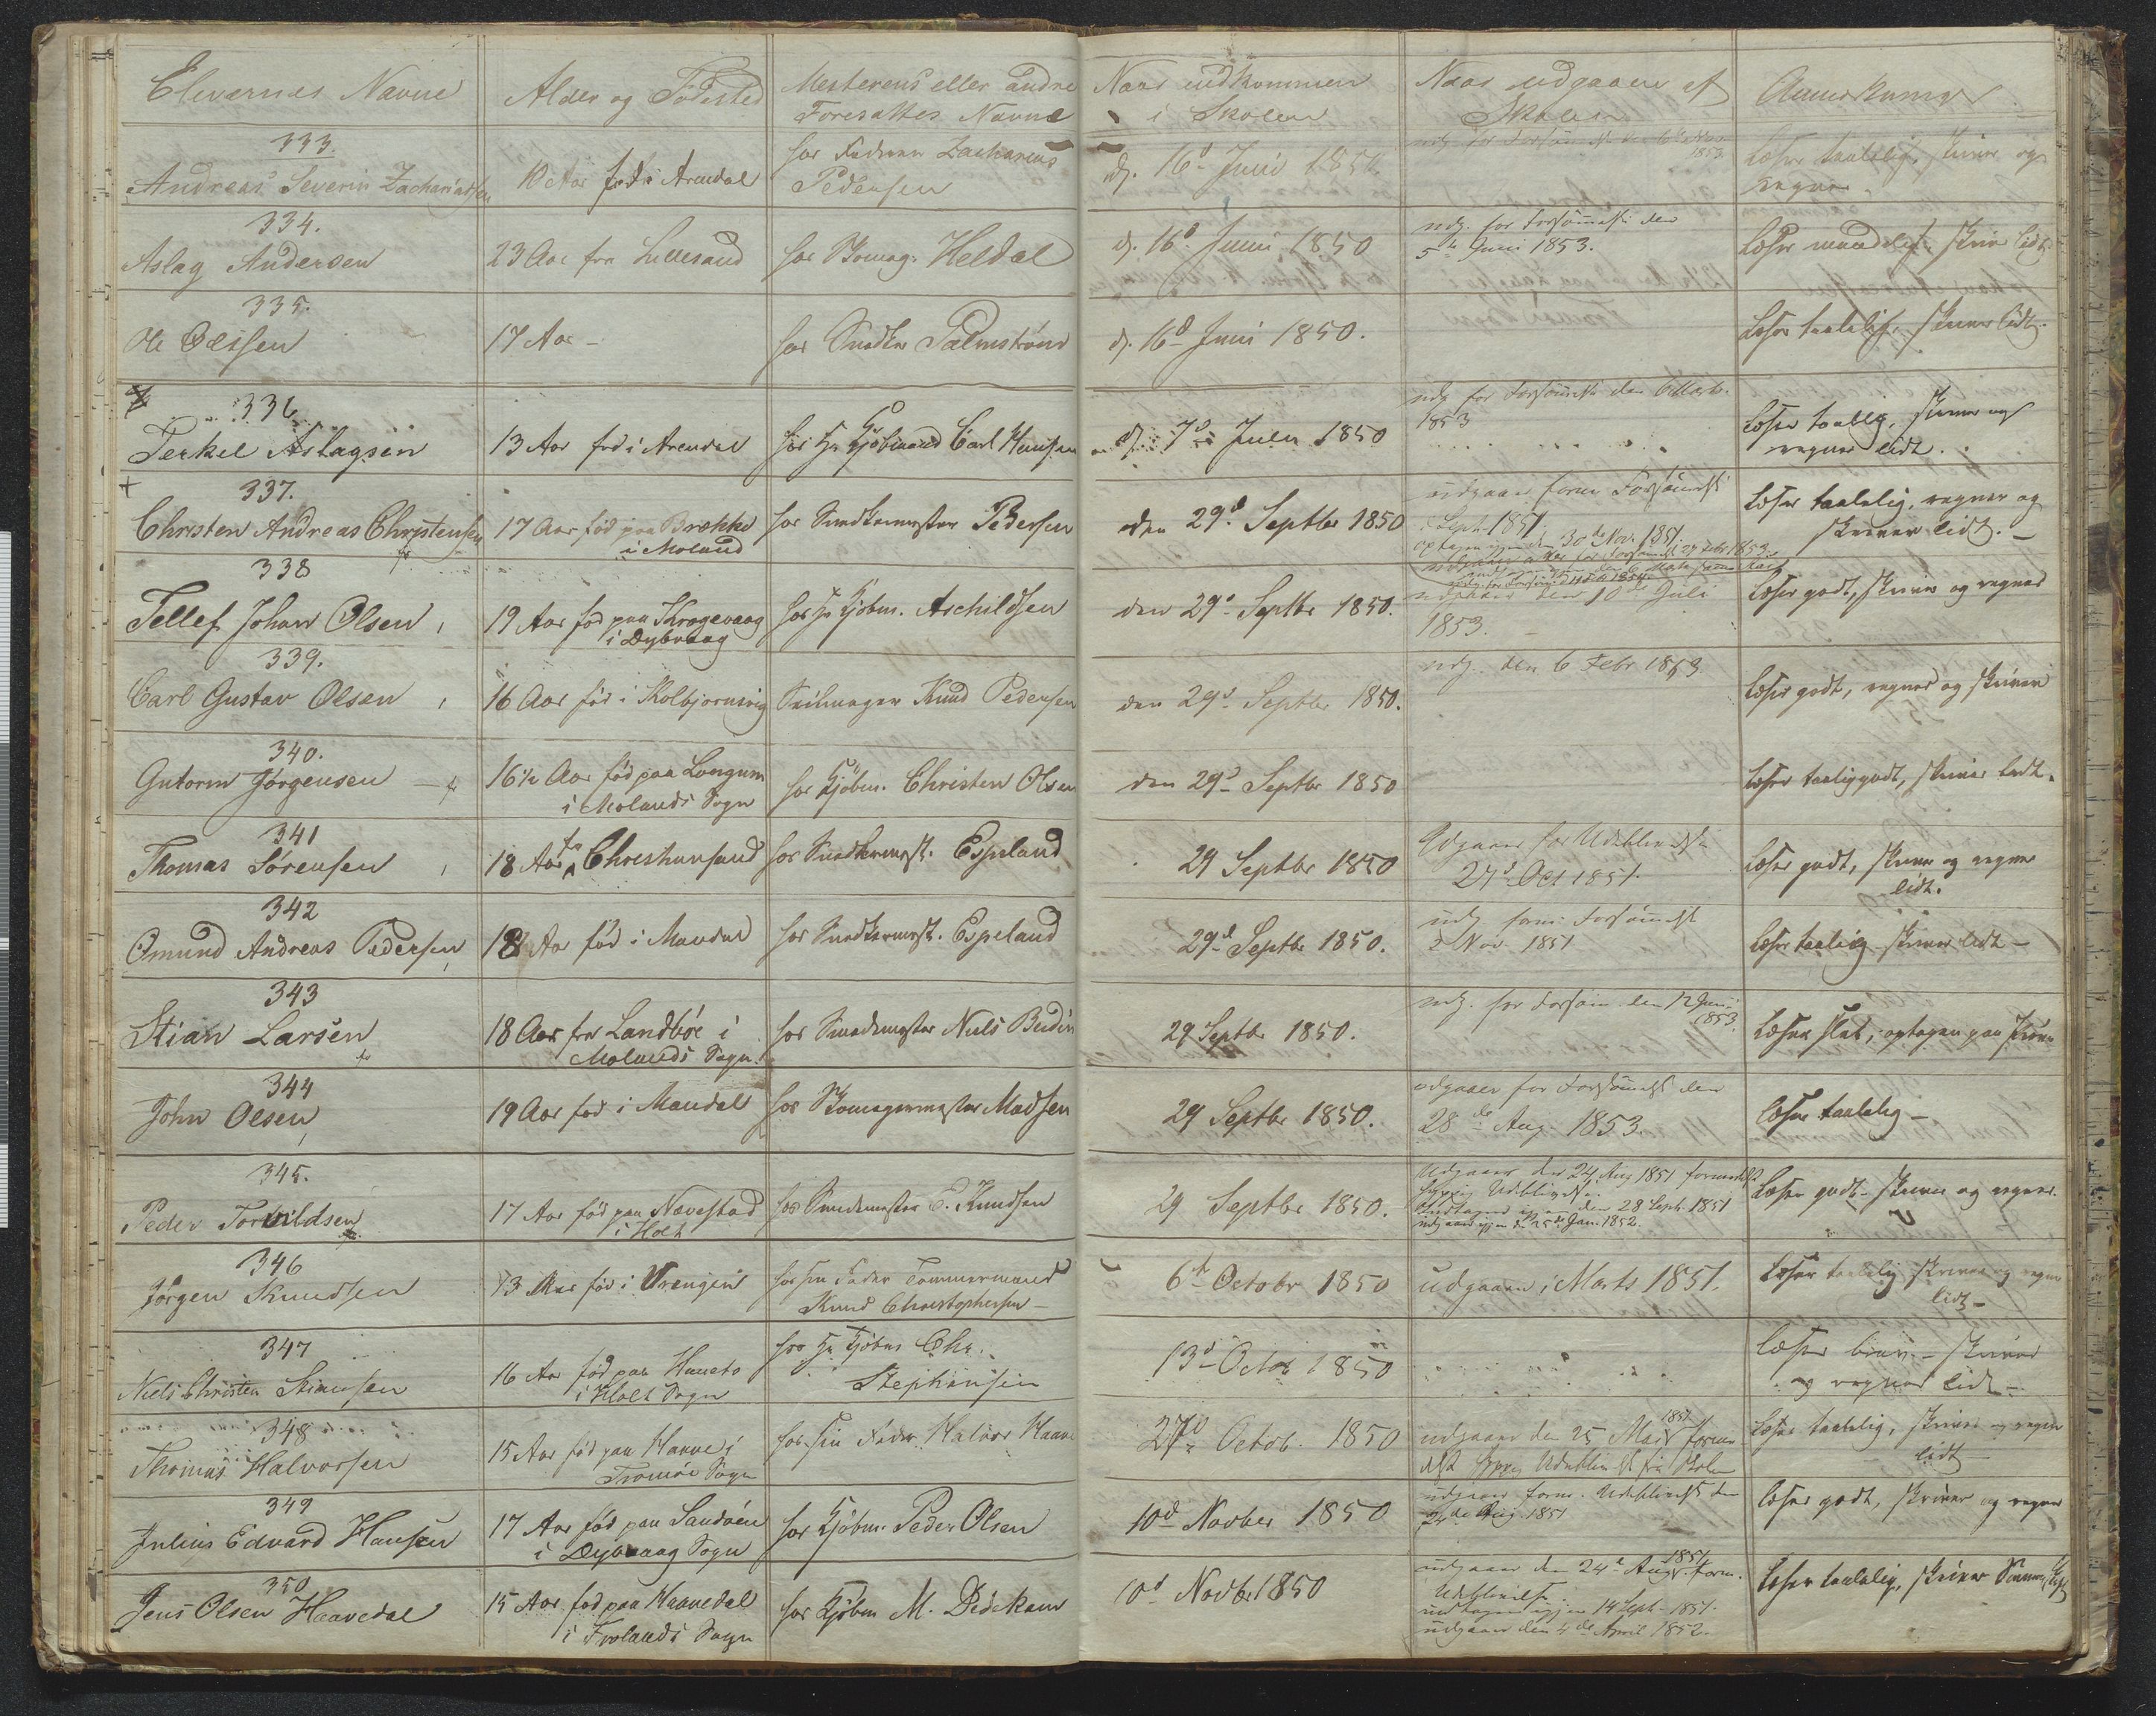 Elevernes Navne
Alder og Födested
Mesterens eller andre
Foresattes Navne
Naar indkommen
i Skolen
Naar udgaaen af
Skolen
333.
Andreas Severin Zachariassen
10 Aar født i Arendal
hos Faderen Zacharias
Pedersen
d. 16d Juni 1850
udg. for Forsömmelse den 6te Nov.
1853.
Læser taalelig, skriver og
regner
334.
Aslag Andersen
23 Aar fra Lillesand
hos Skomag. Heldal
d. 16d Juni 1850
udg. for Forsömmelse den
5te Juni 1853.
Læser maadeligt, skriver lidt
335.
Ole Oelssen
17 Aar -
hos Snedker Palmström
d. 16d Juni 1850.
Læser taaleligt, skriver lidt.
336
Terkel Aslagsen
13 Aar född i Arendal
hos Hr Kjöbmand Carl Hansen
d. 7d Juli 1850
udg for Forsömmelse den 6 Marts.
1853
læser taalelig, skriver og
regner lidt.
+ 337.
Christen Andreas Christensen
17 Aar föd paa Brække
i Moland
hos Snedkermester Pedersen
den 29d Septbr 1850
udgaaen form Forsömmelse
i Sept. 1851.
optagen igjen den 30te Nov. 1851.
læser taalelig, regner og
skriver lidt. -
338
Tellef Johan Olsen,
19 Aar föd paa Krogevaag
i Dybvaag
hos Hr Kjöbm. Aschildsen
den 29d Septbr 1850.
udgaaen den 10de Juli
1853.
læser godt, skriver og regner
339.
Carl Gustav Olsen,
16 Aar föd i Kolbjornsvig
Seilmager Knud Pedersen
den 29d Septbr 1850.
udg. den 6 Febr 1853
læser godt, regner og skriver
340.
Gutorm Jörgensen
16½ Aar föd paa Longum
i Molands Sogn
hos Kjöbm. Christen Olsen
den 29d Septbr 1850
læser taalig godt, skriver lidt.
341
Thomas Sörensen
18 Aar fra Christiansand
hos Snedkermest. Espeland
29 Septbr 1850
Udgaaen for Udeblivelse
27d Oct 1851.
læser godt, skriver og regner
lidt.
342
Omund Andreas Pedersen
18 Aar föd i Mandal
hos Snedkermest. Espeland
29d Septbr 1850.
udg. form. Forsömmelse
2 Nov. 1851
læser taalig skriver lidt -
343
Stian Larsen
18 Aar fra Landböe i
Molands Sogn
hos Smedemester Niels Budin
29 Septbr 1850.
udg. for Forsöm. den 12 Juni
1853.
Læser slet, optagen paa Pröve
344
John Olsen
19 Aar föd i Mandal
hos Skomagermester Madsen
29 Septbr 1850.
udgaaen for Forsömmelse den
28de Aug. 1853.
læser taalelig -
345.
Peder Torvildsen
17 Aar föd paa Navestad
i Holt
hos Smedemester E. Knudsen
29 Septbr 1850.
Udgaaen den 24 Aug 1851 formedelst
hyppig Udeblivelse.
Indtagen igjen den 28 Sept. 1851
udgaaen igjen d. 25de Jan. 1852.
Læser godt - skriver og regner.
346
Jörgen Knudsen
13 Aar föd i Vrengen
hos sin Fader Tömmermand
Knud Christophersen -
6te Octobr 1850
udgaaen i Marts 1851.
Læser taalelig skriver og regner
lidt -
347
Niels Christen Stiansen
16 Aar föd paa Haneto
i Holt Sogn
hos Hr Kjöbm Chr.
Stephansen
13d Octob 1850
læser brav. - skriver
og regner lidt -
348
Thomas Halvorsen
15 Aar föd paa Haave i
Tromöe Sogn
hos sin Fader Halvor Haave
27de Octob. 1850
udgaaen den 25 Mai 1851 forme-
delst hyppig Udeblivelse fra Skolen
læser taalelig, skriver og regner
lidt -
349
Julius Edvard Hansen
17 Aar föd paa Sandöen
i Dybvaag Sogn
hos Kjöbm. Peder Olsen
10d Novber 1850
udgaaen form. Udeblivelse den
24de Aug. 1851
læser godt, skriver og regner
350
Jens Olsen Haavedal
15 Aar föd paa Haavedal
i Frolands Sogn
hos Kjöbm M. Dedekam
10d Novbr 1850
udgaaen den 24de Aug. 1851 form.
Udeblivelse.
indtagen igjen 14 Sept. 1851.
udgaaen den 4de April 1852.
læser taalelig, skriver